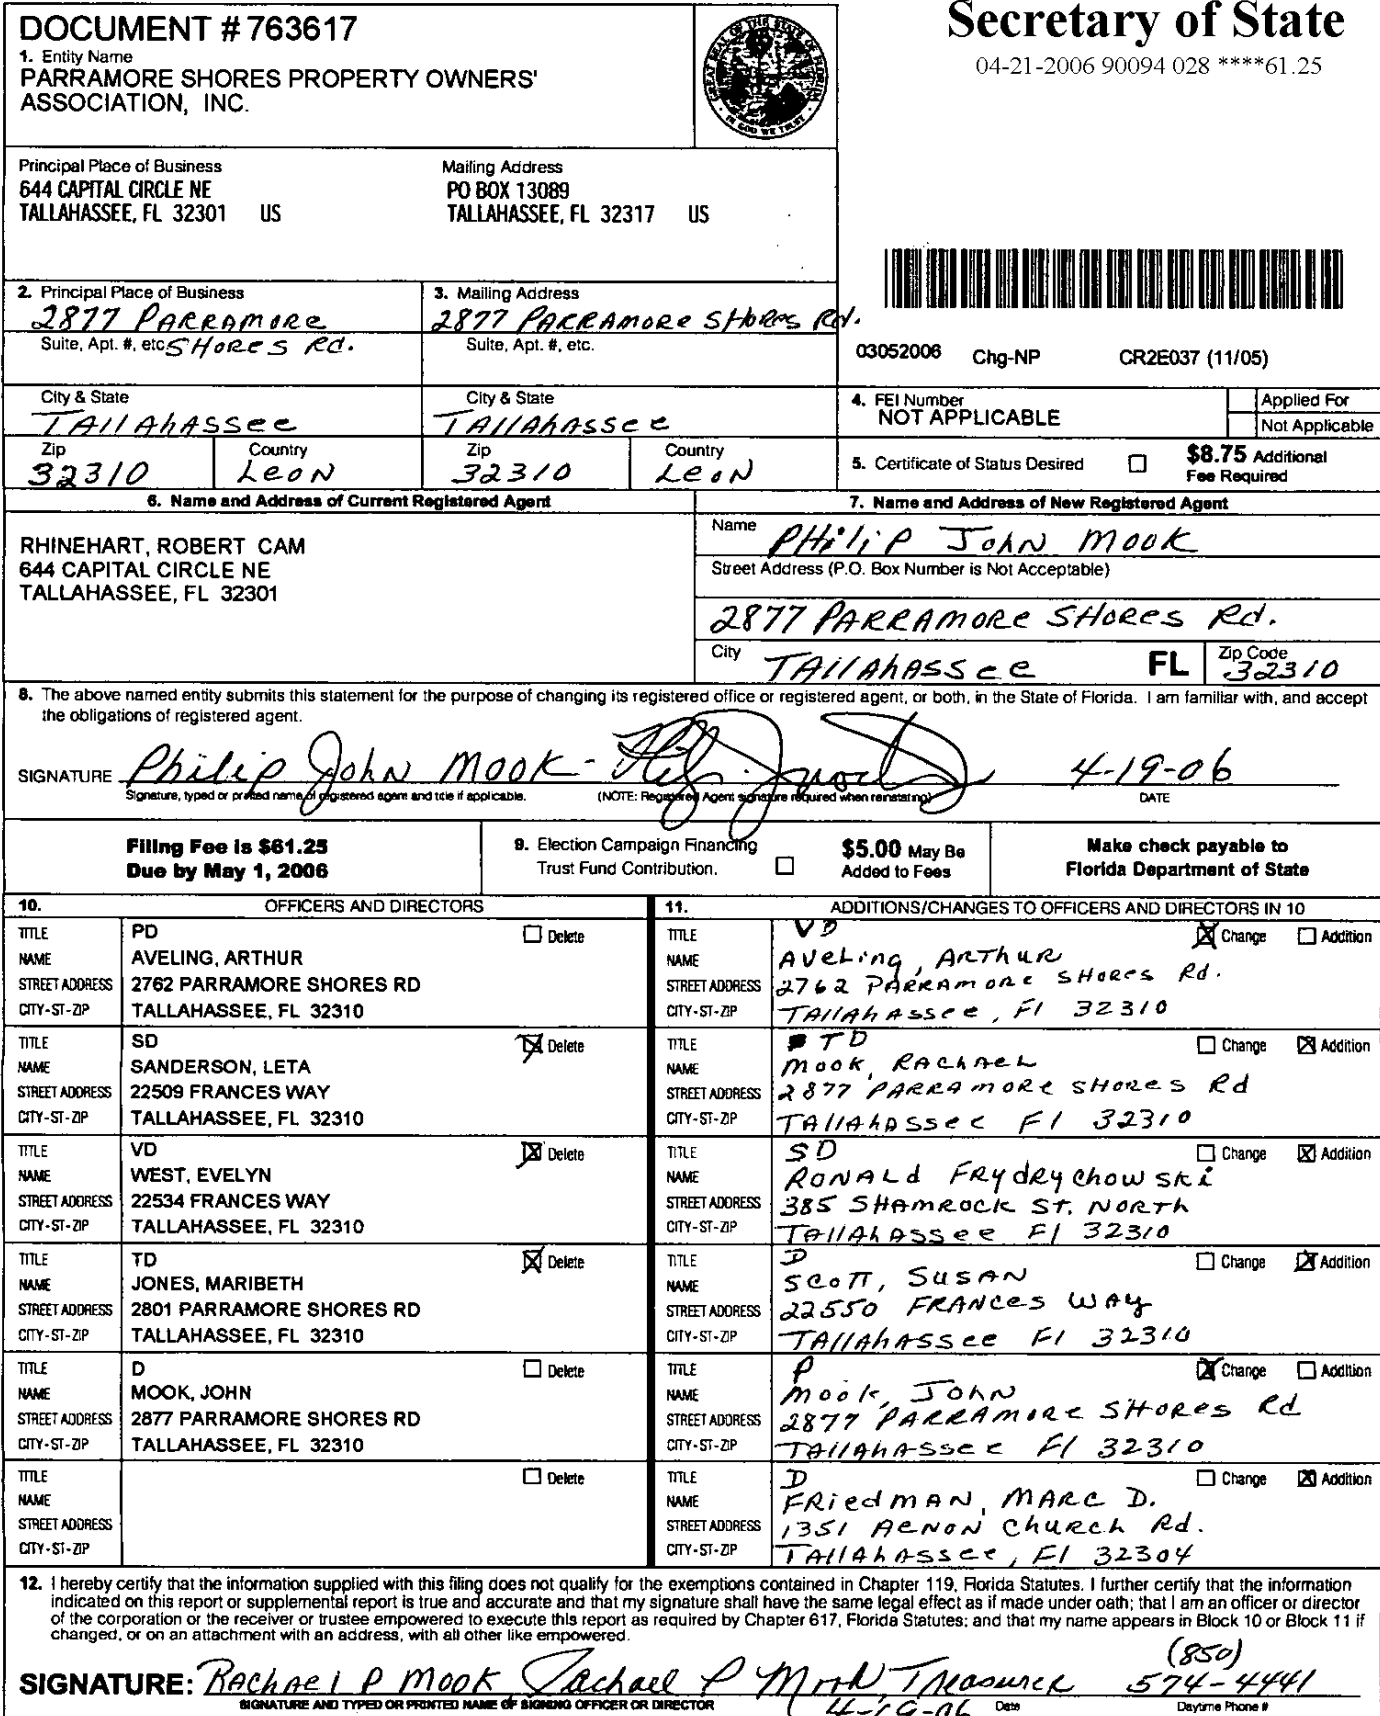 DOCUMENT # 763617
1. Entity Name
PARRAMORE SHORES PROPERTY OWNERS'
ASSOCIATION, INC.
GREAT SEAL OF THE STATE OF FLORIDA
IN GOD WE TRUST
Secretary of State
04-21-2006 90094 028 ****61.25
Principal Place of Business
644 CAPITAL CIRCLE NE
TALLAHASSEE, FL 32301 US
Mailing Address
PO BOX 13089
TALLAHASSEE, FL 32317 US
2. Principal Place of Business
2877 PARRAMORE
Suite, Apt. #, etc. SHORES Rd.
City & State
TAllAhASSee
Zip
32310
Country
LeoN
3. Mailing Address
2877 PARRAMORE SHORES Rd.
Suite, Apt. #, etc.
City & State
TAllAhASSee
Zip
32310
Country
LeoN
03052006 Chg-NP CR2E037 (11/05)
4. FEI Number
NOT APPLICABLE
Applied For
Not Applicable
5. Certificate of Status Desired
$8.75 Additional
Fee Required
6. Name and Address of Current Registered Agent
RHINEHART, ROBERT CAM
644 CAPITAL CIRCLE NE
TALLAHASSEE, FL 32301
7. Name and Address of New Registered Agent
Name PHiliP JohN MOOK
Street Address (P.O. Box Number is Not Acceptable)
2877 PARRAMORE SHORES Rd.
City TAllAhASSee FL Zip Code
32310
8. The above named entity submits this statement for the purpose of changing its registered office or registered agent, or both, in the State of Florida. I am familiar with, and accept
the obligations of registered agent.
SIGNATURE Philip John MOOK - 4-19-06
Signature, typed or printed name of registered agent and title if applicable. (NOTE: Registered Agent signature required when reinstating) DATE
Filing Fee is $61.25
Due by May 1, 2006
9. Election Campaign Financing
Trust Fund Contribution.
$5.00 May Be
Added to Fees
Make check payable to
Florida Department of State
10. OFFICERS AND DIRECTORS
TITLE PD Delete
NAME AVELING, ARTHUR
STREET ADDRESS 2762 PARRAMORE SHORES RD
CITY-ST-ZIP TALLAHASSEE, FL 32310
TITLE SD X Delete
NAME SANDERSON, LETA
STREET ADDRESS 22509 FRANCES WAY
CITY-ST-ZIP TALLAHASSEE, FL 32310
TITLE VD X Delete
NAME WEST, EVELYN
STREET ADDRESS 22534 FRANCES WAY
CITY-ST-ZIP TALLAHASSEE, FL 32310
TITLE TD X Delete
NAME JONES, MARIBETH
STREET ADDRESS 2801 PARRAMORE SHORES RD
CITY-ST-ZIP TALLAHASSEE, FL 32310
TITLE D Delete
NAME MOOK, JOHN
STREET ADDRESS 2877 PARRAMORE SHORES RD
CITY-ST-ZIP TALLAHASSEE, FL 32310
TITLE Delete
NAME
STREET ADDRESS
CITY-ST-ZIP
11. ADDITIONS/CHANGES TO OFFICERS AND DIRECTORS IN 10
TITLE VD X Change Addition
NAME AveLing, ARThuR
STREET ADDRESS 2762 PARRAMORE SHORES Rd.
CITY-ST-ZIP TAllAhASSee, Fl 32310
TITLE TD Change X Addition
NAME MOOK, RAChAeL
STREET ADDRESS 2877 PARRAMORE SHORES Rd
CITY-ST-ZIP TAllAhASSee Fl 32310
TITLE SD Change X Addition
NAME RONALd FRYdRYchowSki
STREET ADDRESS 385 SHAMROCK ST. NORTh
CITY-ST-ZIP TAllAhASSee Fl 32310
TITLE D Change X Addition
NAME SCOTT, SUSAN
STREET ADDRESS 22550 FRANCes WAY
CITY-ST-ZIP TAllAhASSee Fl 32310
TITLE P X Change Addition
NAME MOOK, JOhN
STREET ADDRESS 2877 PARRAMORE SHORES Rd
CITY-ST-ZIP TAllAhASSee Fl 32310
TITLE D Change X Addition
NAME FRiedMAN, MARC D.
STREET ADDRESS 1351 AeNON ChURch Rd.
CITY-ST-ZIP TAllAhASSee, Fl 32304
12. I hereby certify that the information supplied with this filing does not qualify for the exemptions contained in Chapter 119, Florida Statutes. I further certify that the information
indicated on this report or supplemental report is true and accurate and that my signature shall have the same legal effect as if made under oath; that I am an officer or director
of the corporation or the receiver or trustee empowered to execute this report as required by Chapter 617, Florida Statutes; and that my name appears in Block 10 or Block 11 if
changed, or on an attachment with an address, with all other like empowered.
(850)
SIGNATURE: RAChAel P MOOK Rachael P Mook, TReAsuReR 574-4441
SIGNATURE AND TYPED OR PRINTED NAME OF SIGNING OFFICER OR DIRECTOR 4-19-06 Date Daytime Phone #